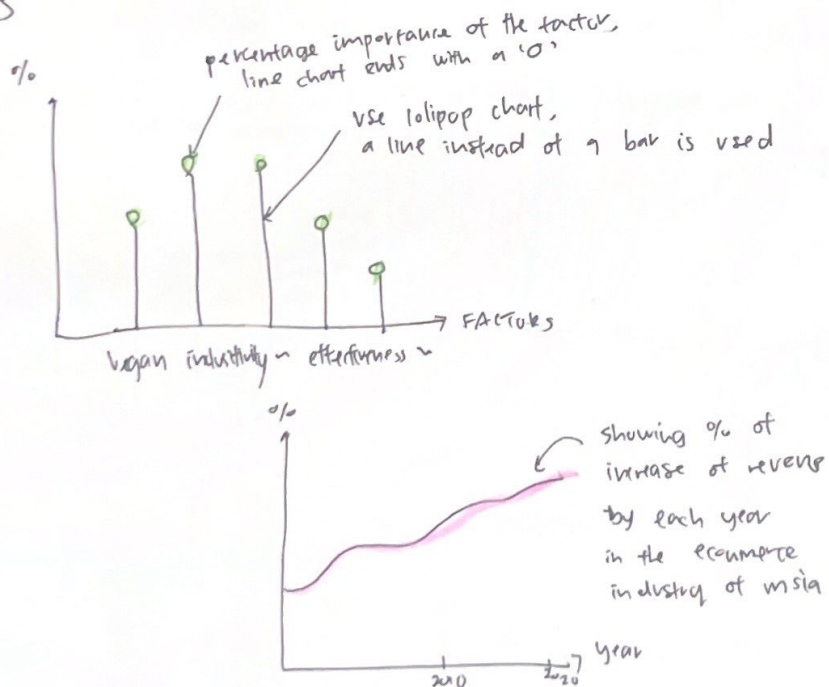 %
percentage importance of the factor,
line chart ends with a 'O'
use lolipop chart,
a line instead of a bar is used
FACTORS
vegan inclusitivity effectiveness
%
showing % of
increase of revenue
by each year
in the ecommerce
industry of msia
year
2010 2020